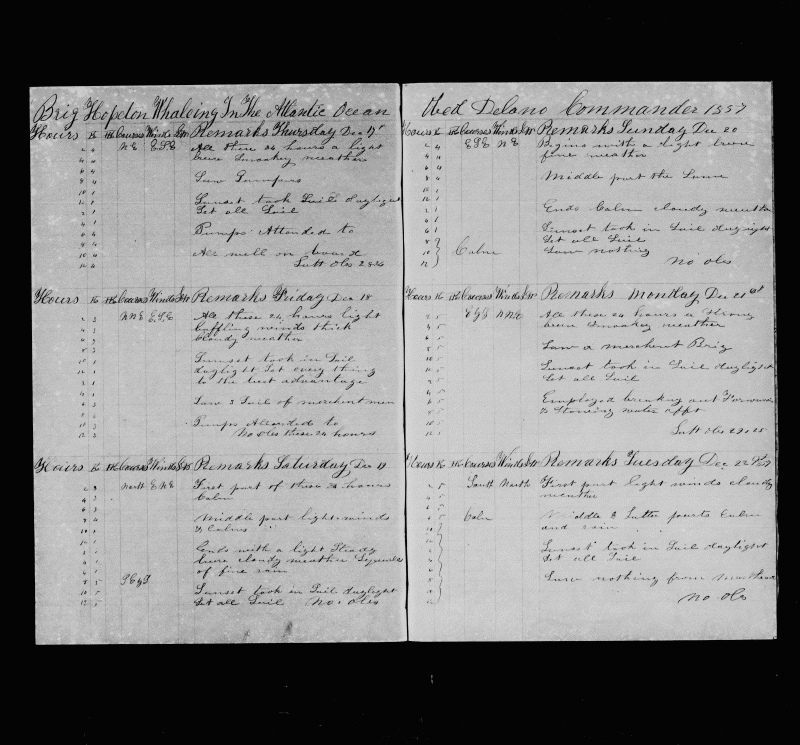 Brig Hopeton Whaleing In The Atlantic Ocean
Hours K HK Courses Winds LW Remarks Thursday Dec 17
2 4 NE ESE All these 24 hours a light
4 4 breeze Smokey weather
6 4
8 4 Saw Gumpers
10 1
12 1 Sunset took Sail daylight
2 1 Set all Sail
4 1
6 4 Pumps Attended to
8 4
10 4 All well on board
12 4 Latt Obs 28 24
Hours K HK Courses Winds LW Remarks Friday Dec 18
2 3 NNE ESE All these 24 hours light
4 3 baffling winds thick
6 3 Cloudy weather
8 3
10 3 Sunset took in Sail
12 1 daylight Set every thing
2 1 to the best advantage
4 1
6 Saw 3 Sail of merchentmen
8
10 Pumps Attended to
12 2 No Obs these 24 hours
Hours K HK Courses Winds LW Remarks Saturday Dec 19
2 3 North ENE First part of these 24 hours
4 3 Calm
6 3
8 4 Middle part light winds
10 1 & Calms
12 1
2 1 Ends with a light Steady
4 1 breeze cloudy weather
6 of fine rain
8 5
10 5 Sunset took in Sail daylight
12 5 Set all Sail No Obs
Obed Delano Commander 1857
Hours K HK Courses Winds LW Remarks Sunday Dec 20
2 4 ESE NE Begins with a light breeze
4 4 fine weather
6 4
8 4 Middle part the Same
10 1
12 1
2 1 Ends Calm cloudy weather
4 1
6 1 Sunset took in Sail daylight
8 Set all Sail
10 Calm Saw nothing
12 No Obs
Hours K HK Courses Winds LW Remarks Monday Dec 21st
2 5 NNE All these 24 hours a Strong
4 5 breeze Smokey weather
6 5
8 5 Saw a merchent Brig
10 5
12 5 Sunset took in Sail daylight
2 5 Set all Sail
4 5
6 5 Employed breaking out Forward
8 5 & Stowing water afft
10 5
12 5 Latt Obs 27 25
Hours K HK Courses Winds LW Remarks Tuesday Dec 22
2 5 South North First part light winds cloudy
4 5 weather
6 5
8 5 Calm Middle & Latter parts Calm
10 and rain
12
2 Sunset took in Sail daylight
4 Set all Sail
6
8 Saw nothing from masthead
10
12 No Obs